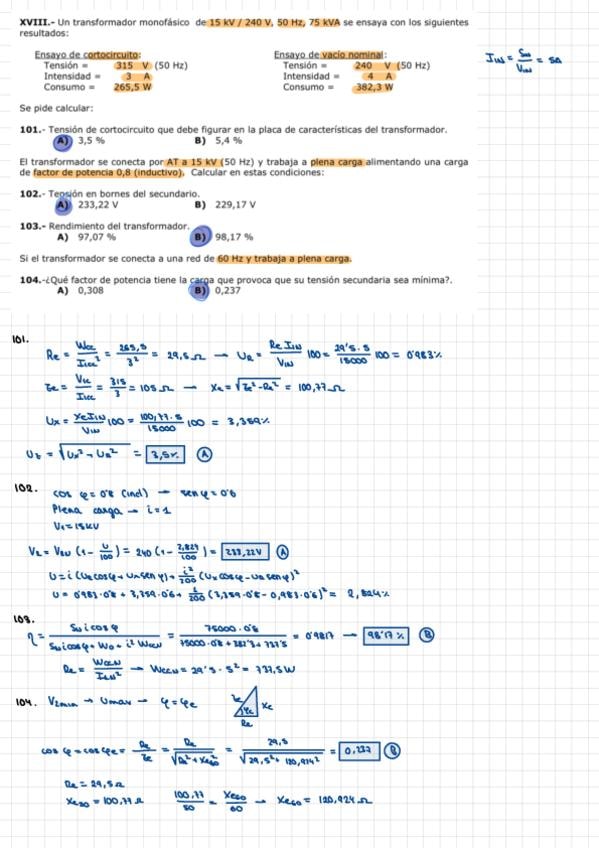 XVIII.- Un transformador monofásico de 15 kV / 240 V, 50 Hz, 75 kVA se ensaya con los siguientes
resultados:
Ensayo de cortocircuito:
Tensión = 315 V (50 Hz)
Intensidad = 3 A
Consumo = 265,5 W
Ensayo de vacío nominal:
Tensión = 240 V (50 Hz)
Intensidad = 4 A
Consumo = 382,3 W
I1N = SN/V1N = 5A
Se pide calcular:
101.- Tensión de cortocircuito que debe figurar en la placa de características del transformador.
A) 3,5 % B) 5,4 %
El transformador se conecta por AT a 15 kV (50 Hz) y trabaja a plena carga alimentando una carga
de factor de potencia 0,8 (inductivo). Calcular en estas condiciones:
102.- Tensión en bornes del secundario.
A) 233,22 V B) 229,17 V
103.- Rendimiento del transformador.
A) 97,07 % B) 98,17 %
Si el transformador se conecta a una red de 60 Hz y trabaja a plena carga.
104.-¿Qué factor de potencia tiene la carga que provoca que su tensión secundaria sea mínima?.
A) 0,308 B) 0,237
101.
Re = Wcc/I1cc² = 265,5/3² = 29,5 Ω → UR = Re I1N/V1N 100 = 29'5·5/15000 100 = 0'983%
Ze = Vcc/I1cc = 315/3 = 105 Ω → Xe = √Ze²-Re² = 100,77 Ω
Ux = Xe I1N/V1N 100 = 100,77·5/15000 100 = 3,359%
Ut = √Ux²+UR² = 3,5% A
102.
cos φ = 0'8 (ind) → sen φ = 0'6
Plena carga → i = 1
V1 = 15kV
V2 = V2N (1 - U/100) = 240 (1 - 2,824/100) = 233,22V A
U = i (UR cos φ + Ux sen φ) + i²/200 (Ux cos φ - UR sen φ)²
U = 0'983·0'8 + 3,359·0'6 + 1/200 (3,359·0'8 - 0,983·0'6)² = 2,824%
103.
η = SN i cos φ/SN i cos φ + W0 + i² WccN = 75000·0'8/75000·0'8 + 382'3 + 737'5 = 0'9817 → 98'17% B
Re = WccN/I1N² → WccN = 29'5·5² = 737,5W
104. V2min → Umax → φ = φe
Ze φe Xe
Re
cos φ = cos φe = Re/Ze = Re/√Re²+Xe60² = 29,5/√29,5²+120,924² = 0,237 B
Re = 29,5 Ω
Xe50 = 100,77 Ω 100,77/50 = Xe60/60 → Xe60 = 120,924 Ω